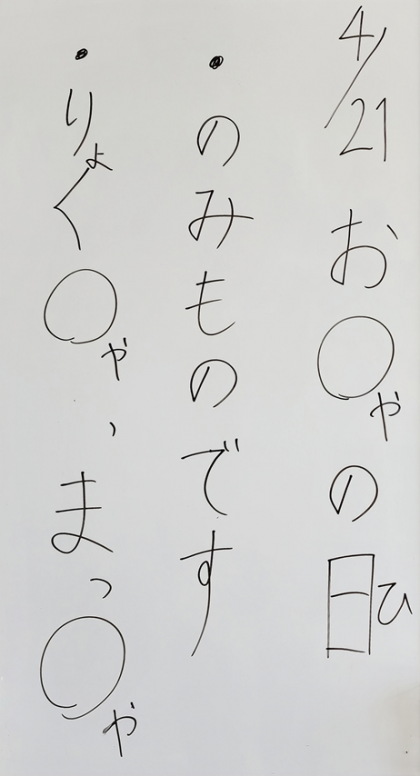 4/21 お〇ゃの日ひ
・のみものです
・りょく〇ゃ、まっ〇ゃ